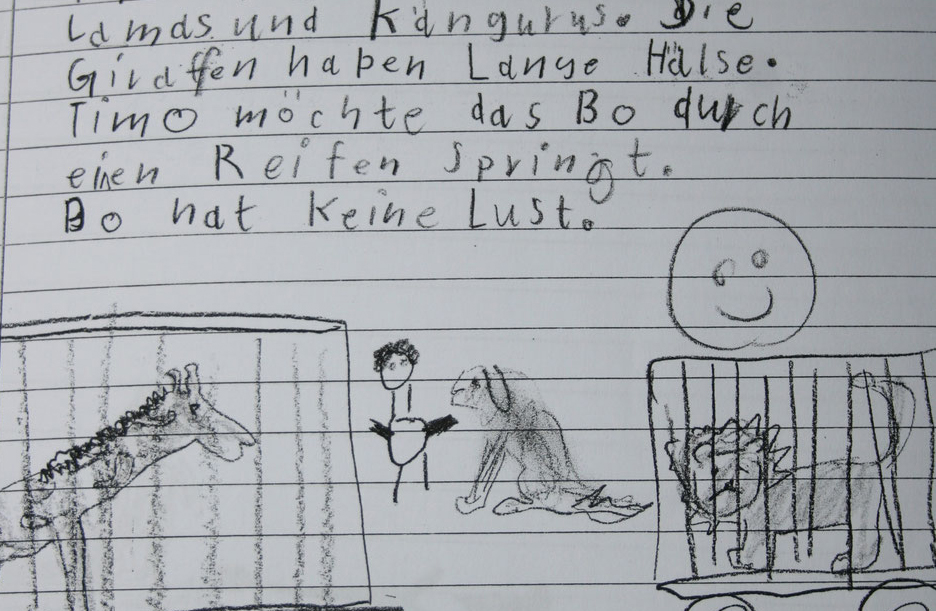 Lamas und Kängurus. Die
Giraffen haben Lange Hälse.
Timo möchte das Bo durch
einen Reifen springt.
Bo hat Keine Lust.